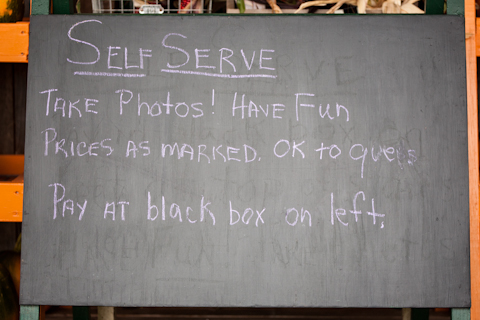 Self Serve
Take Photos! Have Fun
Prices as marked. OK to quess
Pay at black box on left.